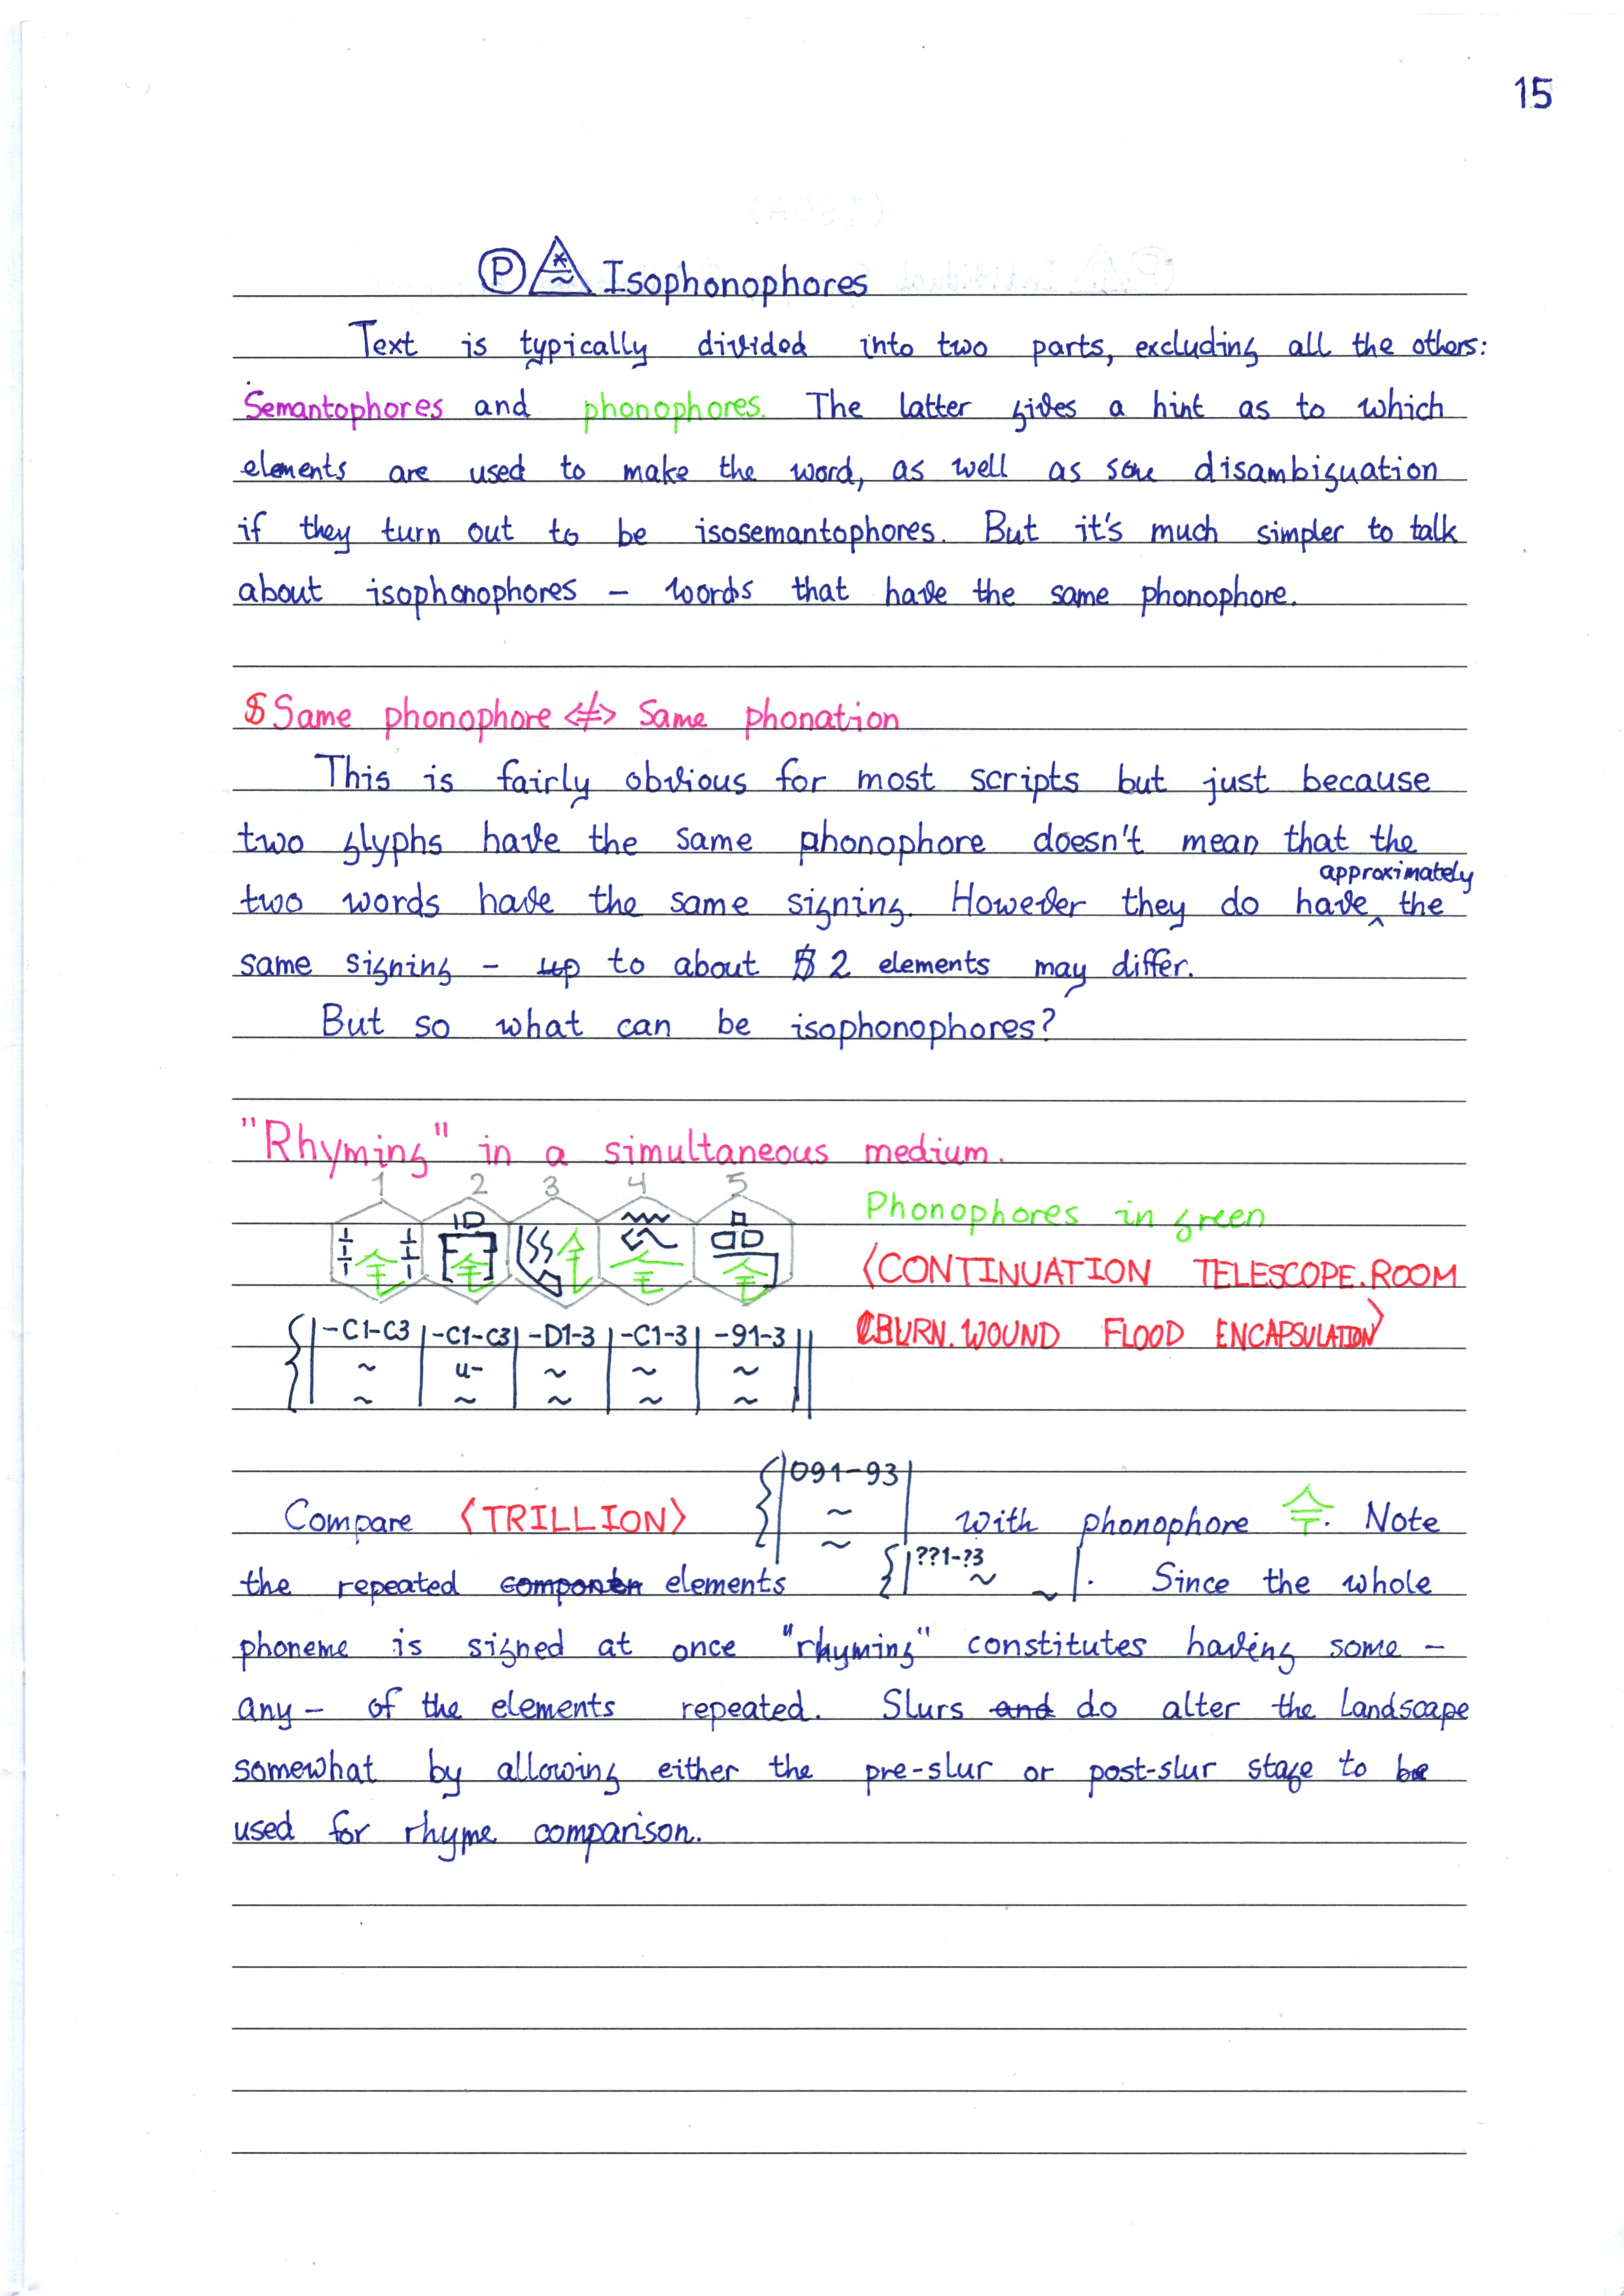 15
Ⓟ Isophonophores
Text is typically divided into two parts, excluding all the others:
Semantophores and phonophores. The latter gives a hint as to which
elements are used to make the word, as well as some disambiguation
if they turn out to be isosemantophores. But it's much simpler to talk
about isophonophores – words that have the same phonophore.
Same phonophore <≠> Same phonation
This is fairly obvious for most scripts but just because
two glyphs have the same phonophore doesn't mean that the
two words have the same signing. However they do have approximately the
same signing – up to about 2 elements may differ.
But so what can be isophonophores?
"Rhyming" in a simultaneous medium.
1 2 3 4 5
Phonophores in green
⟨CONTINUATION TELESCOPE.ROOM
BURN.WOUND FLOOD ENCAPSULATION⟩
{|-C1-C3|-C1-C3|-D1-3|-C1-3|-91-3||
~ u- ~ ~ ~
~ ~ ~ ~ ~
Compare ⟨TRILLION⟩ {|091-93| ~ ~ with phonophore 令. Note
the repeated elements {|??1-?3 ~ ~|. Since the whole
phoneme is signed at once "rhyming" constitutes having some –
any – of the elements repeated. Slurs do alter the landscape
somewhat by allowing either the pre-slur or post-slur stage to be
used for rhyme comparison.